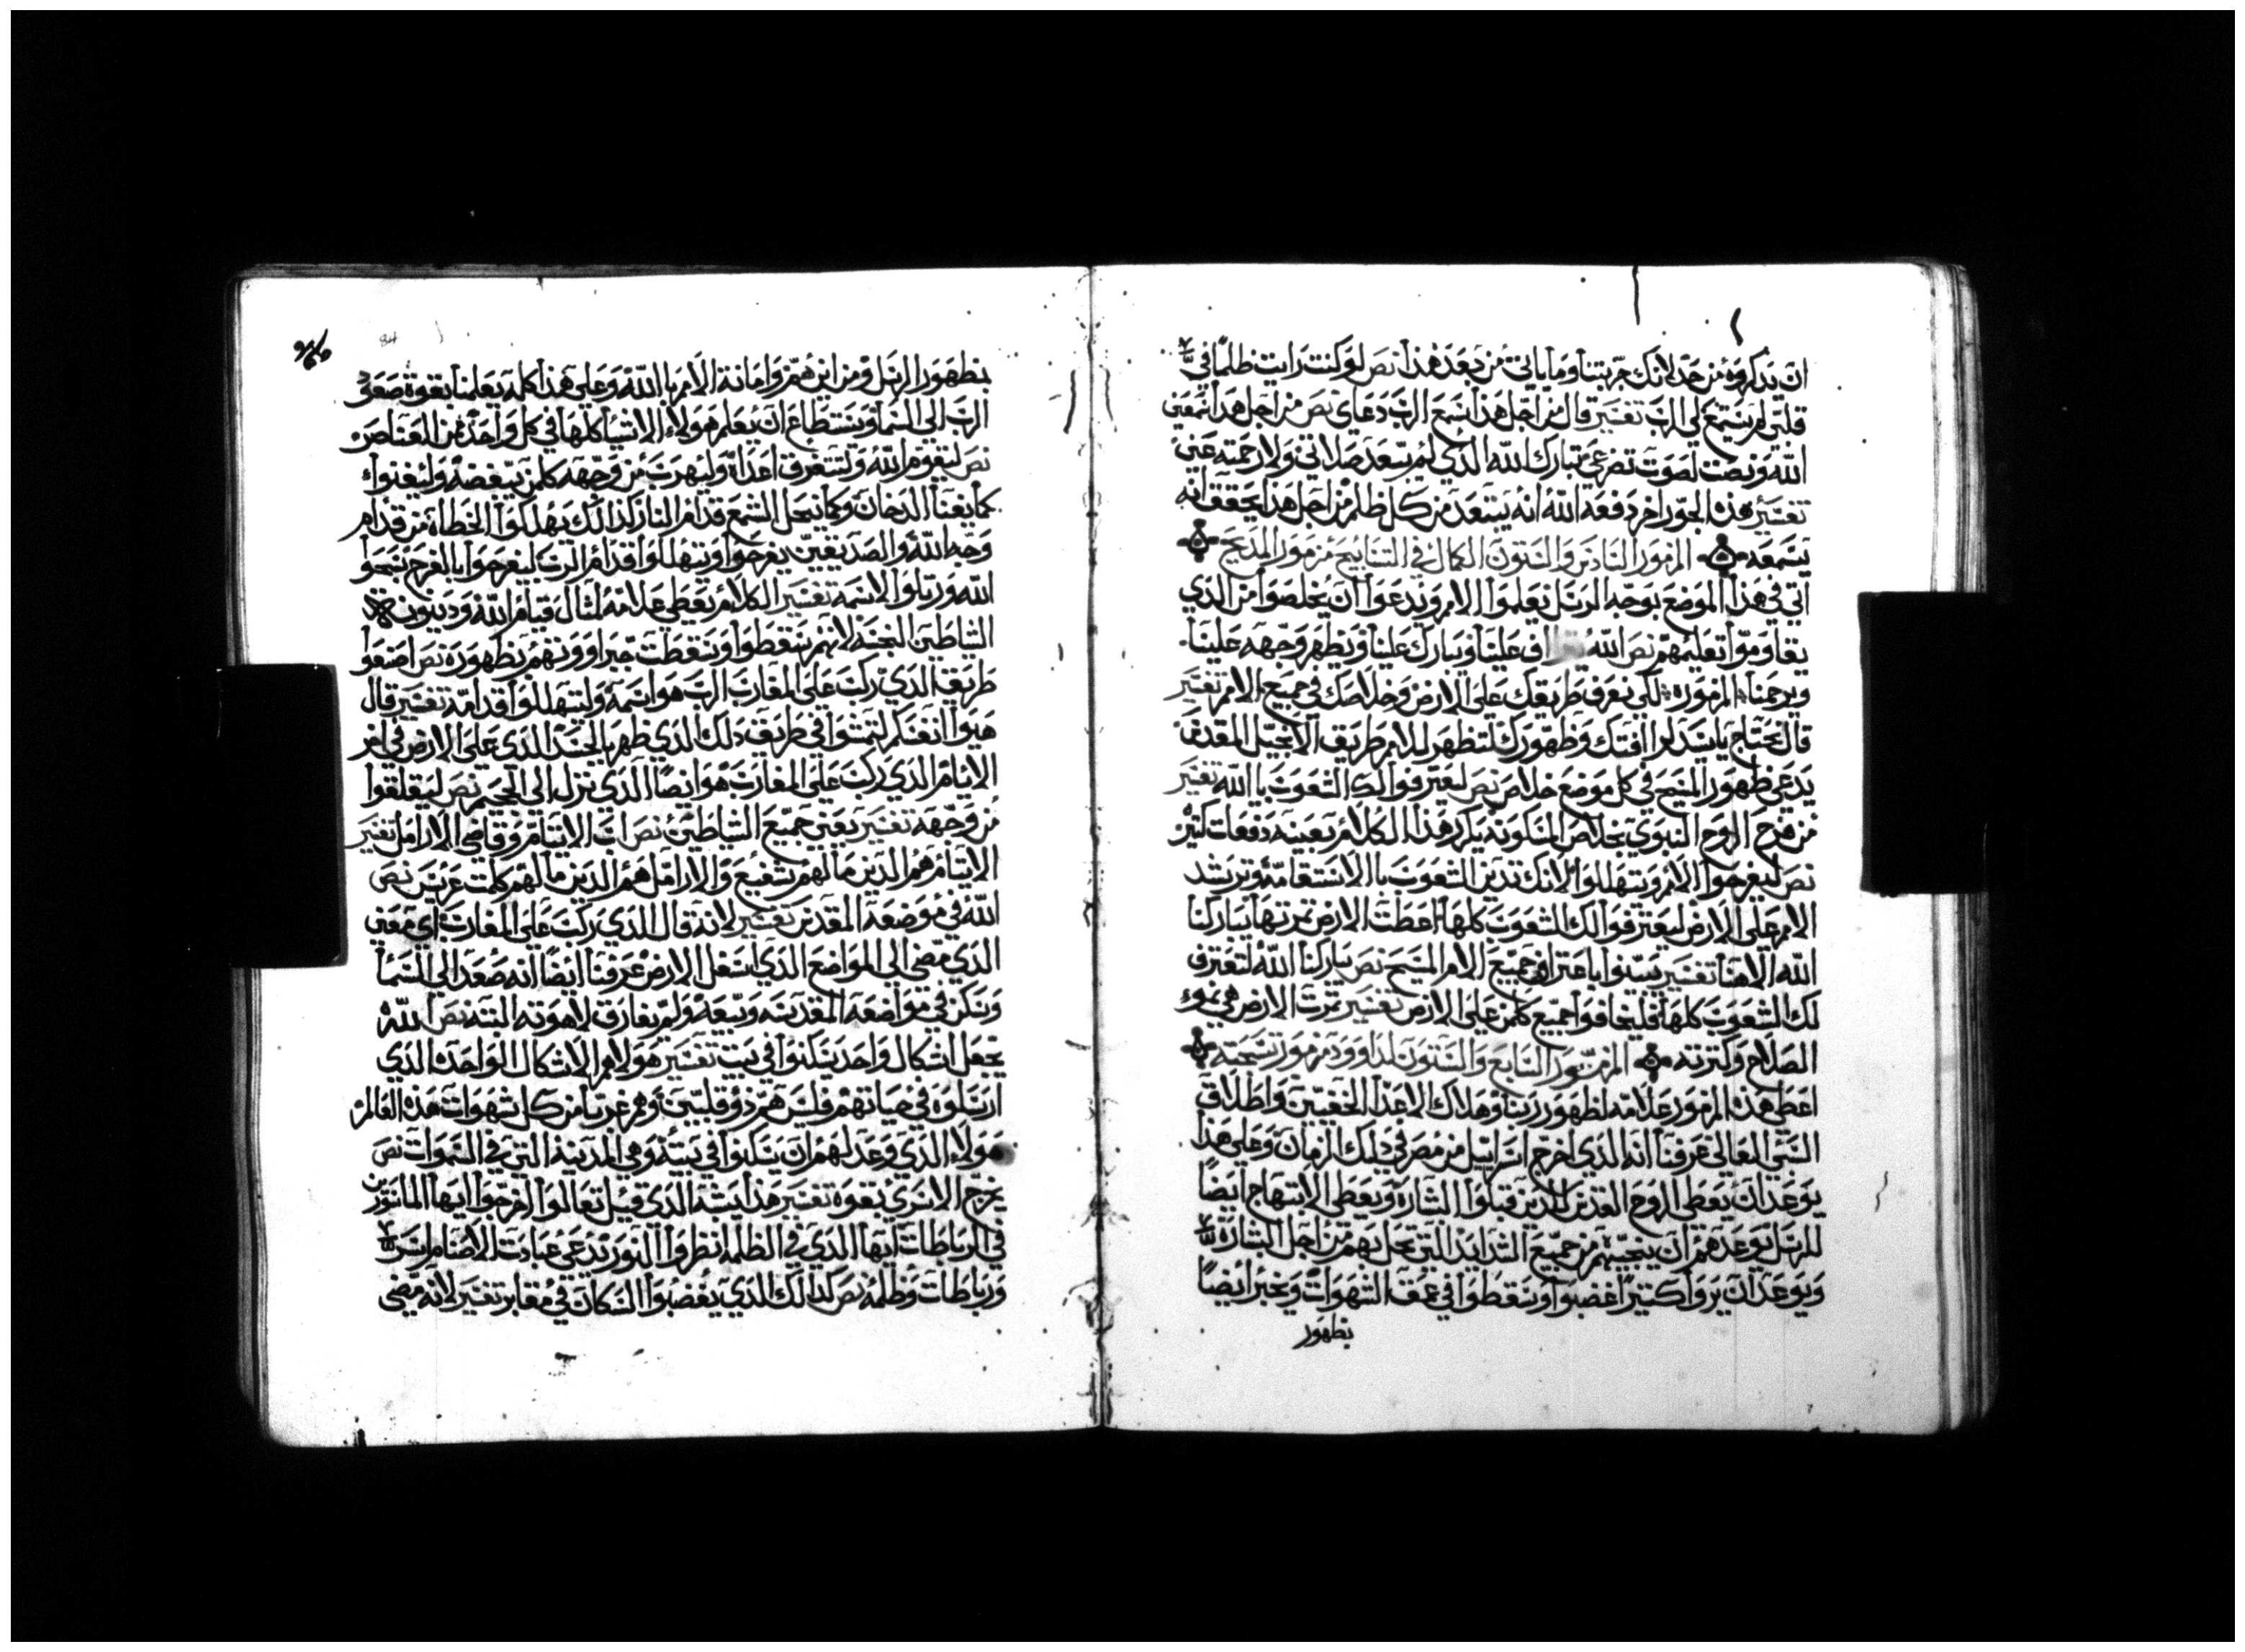 ان يدكروه من حد لانك جربتنا وما ياتي من بعد هذا نص لو كنت رايت ظلمًا في
قلبي لم يستمع لي الرب تفسير قال من اجل هذا سمع الرب دعاي نص من اجل هذا سمعني
الله ونصت لصوت تضرعي تبارك الله الدي لم يبعد صلاتي ولا رحمته عني
تفسير هذه الجور اخر دفعه الله انه يبتعد من كل ظلم من اجل هذا يحقق انه
يسمعه المزمور السادس والستون الكمال في التسابيح مزمور المديح
اتي في هذا الموضع بوجه الرسل تعلموا الامم وتدعوا ان يخلصوا من الدي
يقاوموا تعليمهم نص الله علينا ويبارك علينا ويظهر وجهه علينا
ويرحمنا المزموره لكي نعرف طريقك على الارض وخلاصك في جميع الامم تفسير
قال نحتاج يا سيد لرافتك وظهورك لتظهر للامم طريق الانجيل المقدس
يدعي ظهور المسيح في كل موضع خلاص نص ليعترفوا لك الشعوب يا الله تفسير
من فرح الروح النبوي بخلاص المسكونه يكرر هذا الكلام بعينه دفعات كتير
نص ليفرحوا الامم ويتهللوا لانك تدين الشعوب بالاستقامه وترشد
الامم على الارض ليعترفوا لك الشعوب كلها اعطت الارض تمرتها يباركنا
الله الاهنا تفسير يبتدوا باعتراف جميع الامم المسيح نص يباركنا الله لتعترف
لك الشعوب كلها فليخافوا جميع كلمن على الارض تفسير تمرت الارض هي نموء
الصلاح وكترته المزمور السابع والستون لداوود مزمور تسبحته
اعطي هذا المزمور علامه لظهور ربنا وهلاك الاعدا الخفيين واطلاق
السبي المعالى عرفنا انه الدي اخرج اسراييل من مصر في دلك الزمان وعلى هدا
يوعد ان يعطي الروح القدس للدين قبلوا البشاره ويعطي الابتهاج ايضًا
للرسل يوعدهم ان ينجيهم من جميع الشدايد التي تحل بهم من اجل البشاره
ويوعد ان يروا كتيرًا غضبوا وسقطوا في عمق الشهوات ويخبر ايضًا
بظهور
بظهور الرسل ومن اين هم وامانة الامم بالله وعلى هذا كله يعلمنا بقوة صعود
الرب الى السما ويستطاع ان يعلم هولاء الاشيا كلها في كل واحد من العناصر
نص ليقوم الله ولتتفرق اعداه وليهرب من وجهه كلمن يبغضه وليفنواء
كما يفنا الدخان وكما ينحل الشمع قدام النار كدالك يهلكوا الخطاه من قدام
وجه الله والصديقين يفرحوا ويتهللوا قدام الرب ليفرحوا بالفرح سبحوا
الله ورتلوا لاسمه تفسير الكلام يعطي علامه لمثال قيام الله وديبون
الشاطين النجسه لانهم يسقطوا وسقطت جبراووتهم بظهوره نص اصنعوا
طريق الدي ركب على المغارب الرب هو اسمه وليتهللوا قدامه تفسير قال
هيوا انفسكم لتمشوا في طريق دلك الدي ظهر بالجسد الدي على الارض في اخر
الايام الدي ركب على المغارب هو ايضًا الدي نزل الى الجحيم نص ليقلقوا
من وجهه تفسير يعني جميع الشياطين نص اب الايتام وقاضي الارامل تفسير
الايتام هم الدين ما لهم شفيع والارامل هم الدين ما لهم كلمت عريس نص
الله في موضعه المقدس تفسير لانه قال الدي ركب على المغارب اي معني
الدي مضي الى المواضع الدي اسفل الارض عرفنا ايضًا انه صعد الى السما
وسكن في مواضعه المقدسه وبيعه ولم يفارق لاهوته البته نص الله
يجعل اشكال واحد يسكنوا في بيت تفسير هولاء هم الاشكال الواحده الدي
ارسلوه في حياتهم فليس هم دو قلبين وهم غربا من كل شهوات هده العالم
هولاء الدي وعد لهم ان يسكنوا في بيته وهي المدينه التي في السموات نص
يخرج الاسري بقوه تفسير هذا يشبه الدي قيل تعالوا اخرجوا ايها الماسورين
في الرباطات ايها الدي في الظلمه انظروا النور يدعي عبادت الاصنام
ورباطات وظلمه نص كدالك الدي يغضبوا السكان في مقابر تفسير لانه مضي